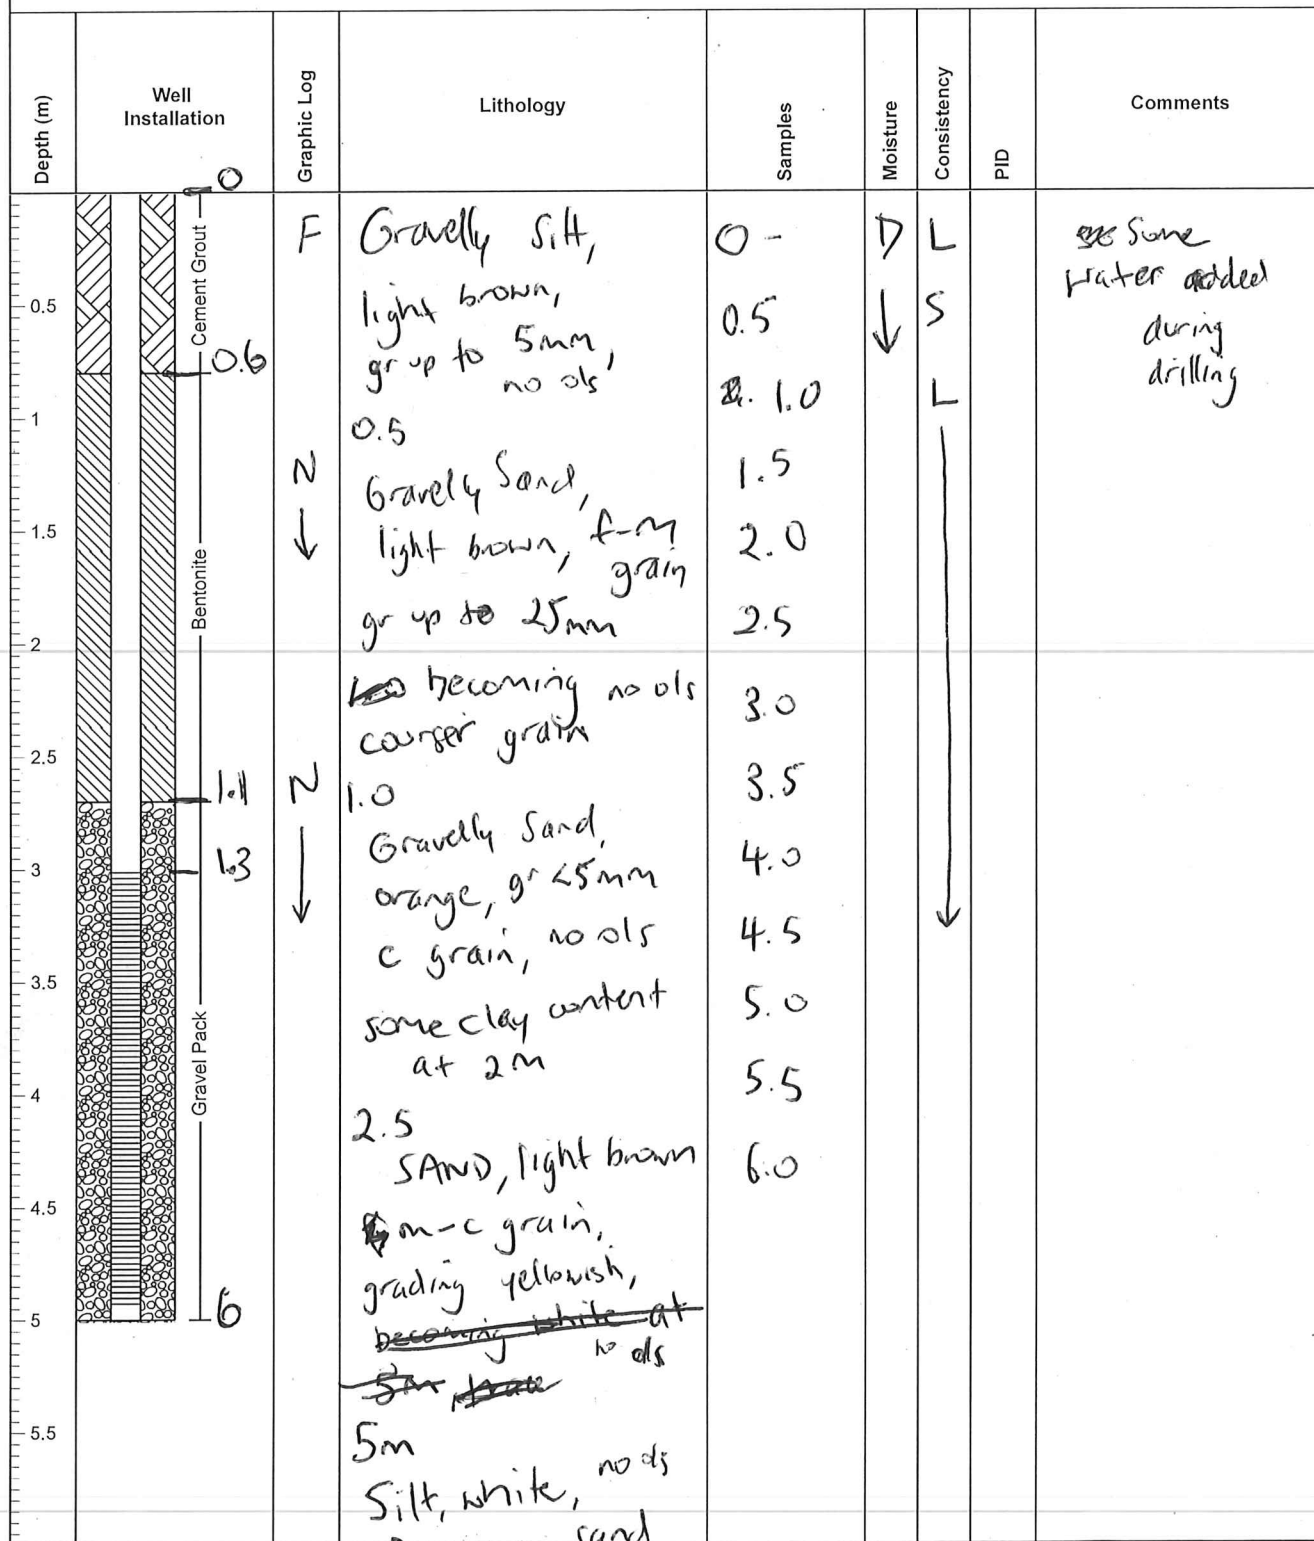 Depth (m)
Well
Installation
Graphic Log
Lithology
Samples
Moisture
Consistency
PID
Comments
0
Cement Grout
0.6
Bentonite
1.1
1.3
Gravel Pack
6
0.5
1
1.5
2
2.5
3
3.5
4
4.5
5
5.5
F
N
N
Gravelly Silt,
light brown,
gr up to 5mm,
no ols
0.5
Gravelly Sand,
light brown, f-m
grain
gr up to 25mm
becoming no ols
courser grain
1.0
Gravelly Sand,
orange, gr <5mm
c grain, no ols
some clay content
at 2m
2.5
SAND, light brown
m-c grain,
grading yellowish,
becoming white at
no ols
5m
5m
Silt, white, no ols
sand
0 -
0.5
1.0
1.5
2.0
2.5
3.0
3.5
4.0
4.5
5.0
5.5
6.0
D
L
S
L
Some
water added
during
drilling